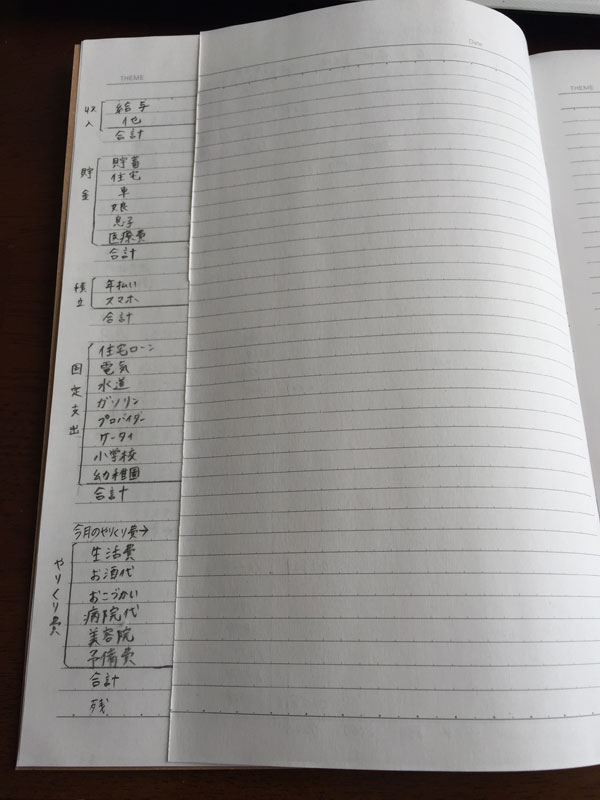 THEME
Date
THEME
収入
給与
他
合計
貯金
貯蓄
住宅
車
娘
息子
医療費
合計
積立
年払い
スマホ
合計
固定支出
住宅ローン
電気
水道
ガソリン
プロバイダー
ケータイ
小学校
幼稚園
合計
今月のやりくり費→
やりくり費
生活費
お酒代
おこづかい
病院代
美容院
予備費
合計
残